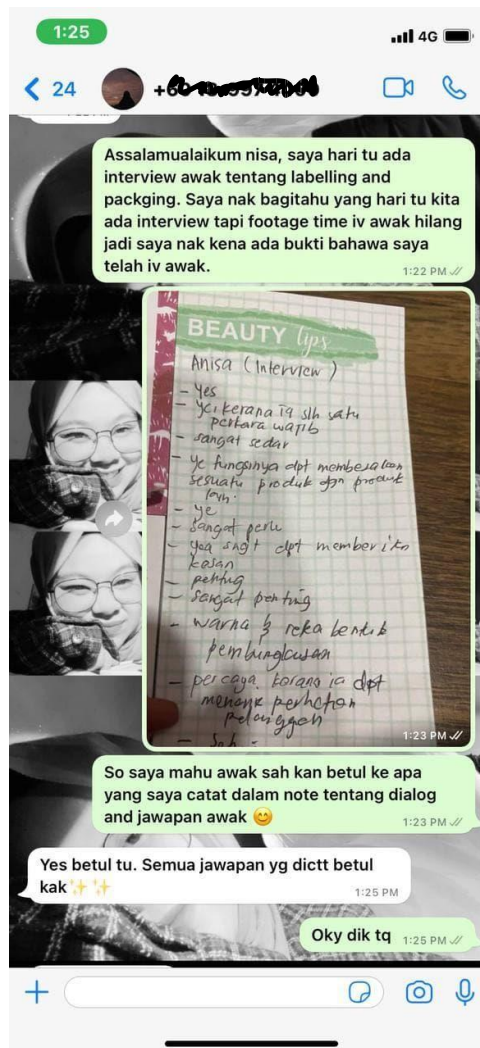 1:25
4G
24
Assalamualaikum nisa, saya hari tu ada
interview awak tentang labelling and
packging. Saya nak bagitahu yang hari tu kita
ada interview tapi footage time iv awak hilang
jadi saya nak kena ada bukti bahawa saya
telah iv awak.
1:22 PM
BEAUTY tips
Anisa (Interview)
- Yes
- ye, kerana ia slh satu
perkara wajib
- sangat sedar
- ye fungsinya dpt membezakan
sesuatu produk dgn produk
lain.
- ye
- Sangat perlu
- yaa sngt dpt memberikn
kesan
- penting
- sangat penting
- warna & reka bentuk
pembungkusan
- percaya. kerana ia dpt
menarik perhatian
pelanggan
1:23 PM
So saya mahu awak sah kan betul ke apa
yang saya catat dalam note tentang dialog
and jawapan awak
1:23 PM
Yes betul tu. Semua jawapan yg dictt betul
kak
1:25 PM
Oky dik tq
1:25 PM